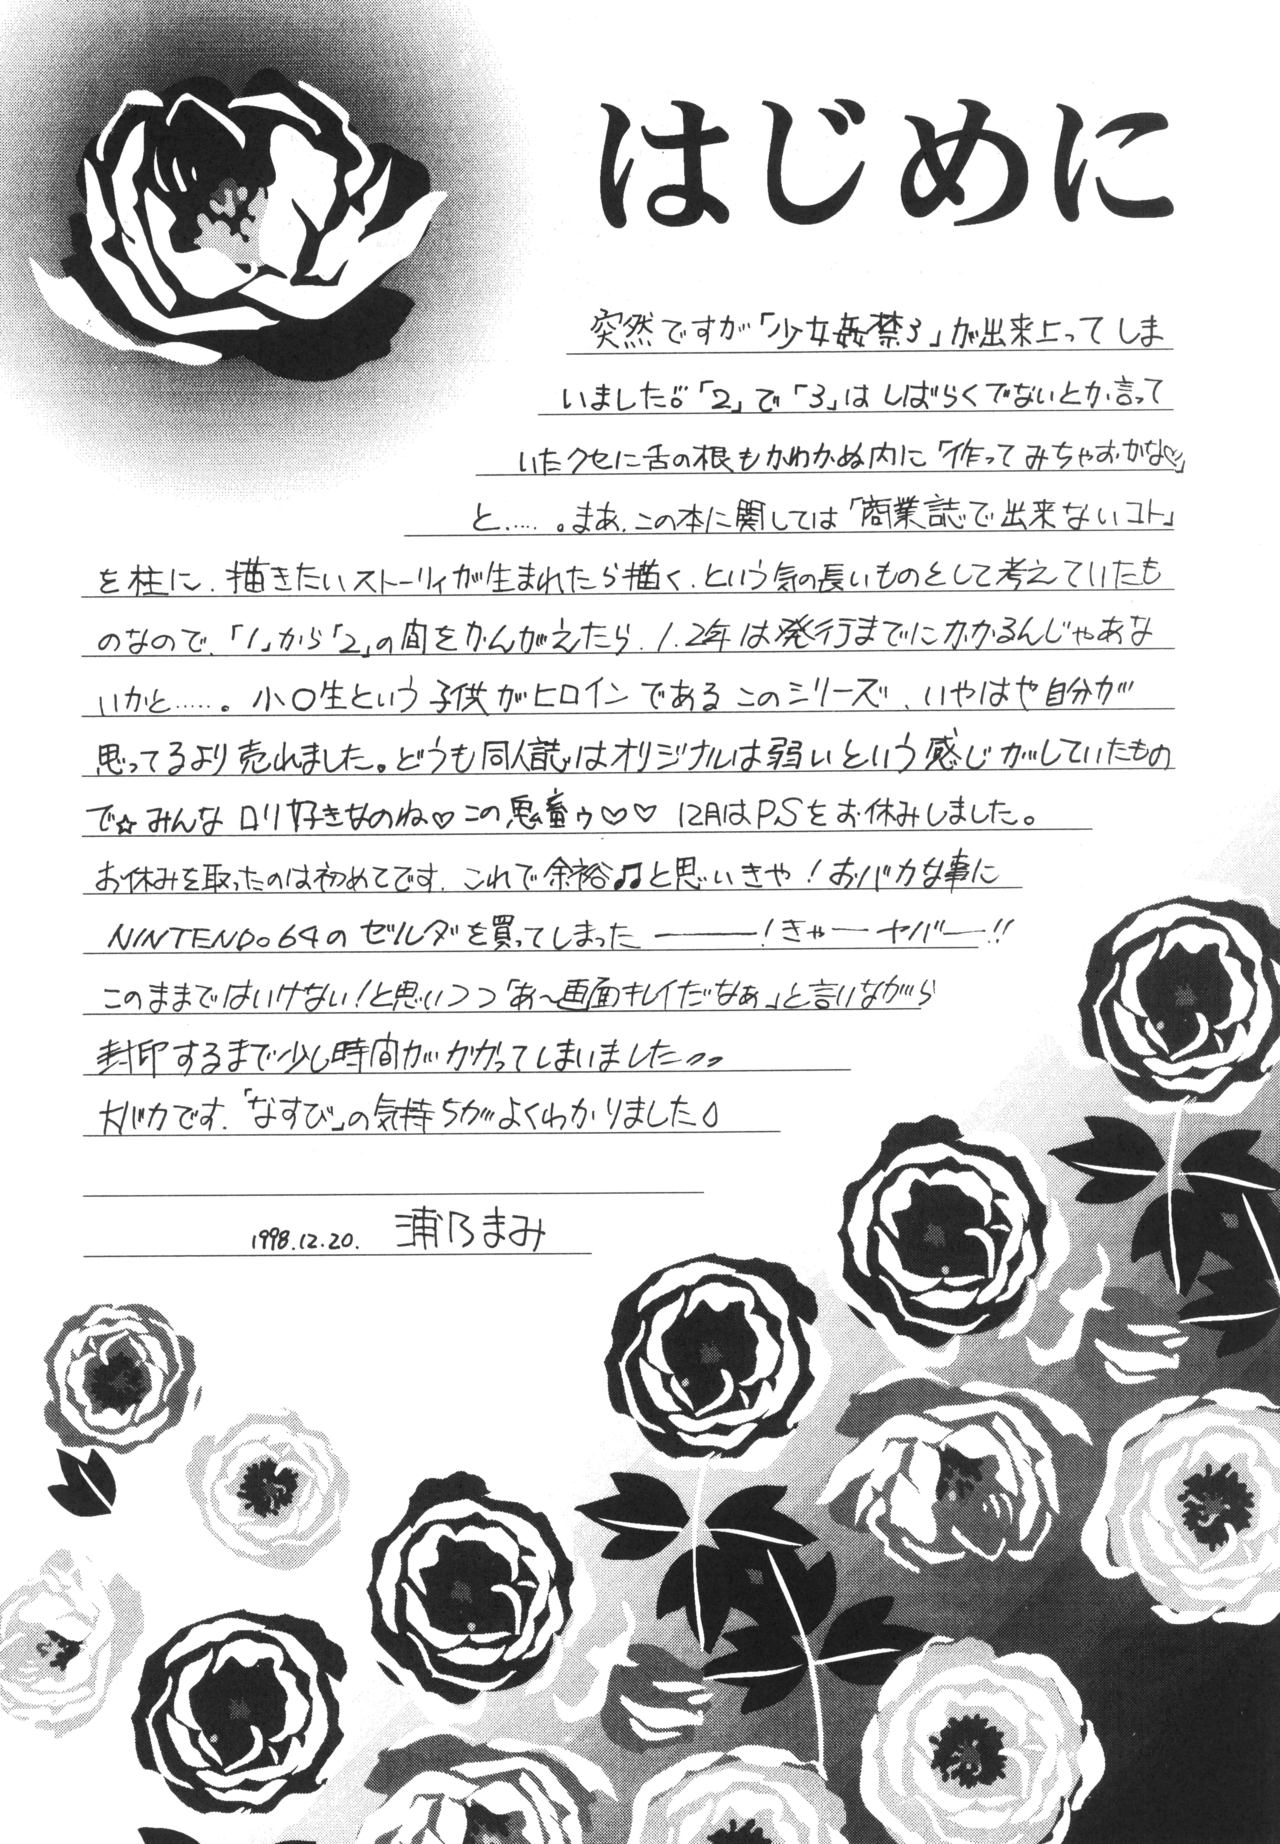 はじめに
突然ですが「少女姦禁3」が出来上ってしま
いました。「2」で「3」はしばらくでないとか言って
いたクセに舌の根もかわかぬ内に「作ってみちゃおかな♡」
と……。まあ、この本に関しては「商業誌で出来ないコト」
を柱に、描きたいストーリィが生まれたら描く、という気の長いものとして考えていたも
のなので、「1」から「2」の間をかんがえたら、1、2年は発行までにかかるんじゃあな
いかと……。小〇生という子供がヒロインであるこのシリーズ、いやはや自分が
思ってるより売れました。どうも同人誌はオリジナルは弱いという感じがしていたもの
で☆みんなロリ好きなのね♡この鬼畜ゥ♡♡ 12月はP.Sをお休みしました。
お休みを取ったのは初めてです。これで余裕♫と思いきや!おバカな事に
NINTENDO64のゼルダを買ってしまった―――!きゃーヤバー!!
このままではいけない!と思いつつ「あ〜画面キレイだなぁ」と言いながら
封印するまで少し時間がかかってしまいました
大バカです。「なすび」の気持ちがよくわかりました
1998.12.20. 浦乃まみ